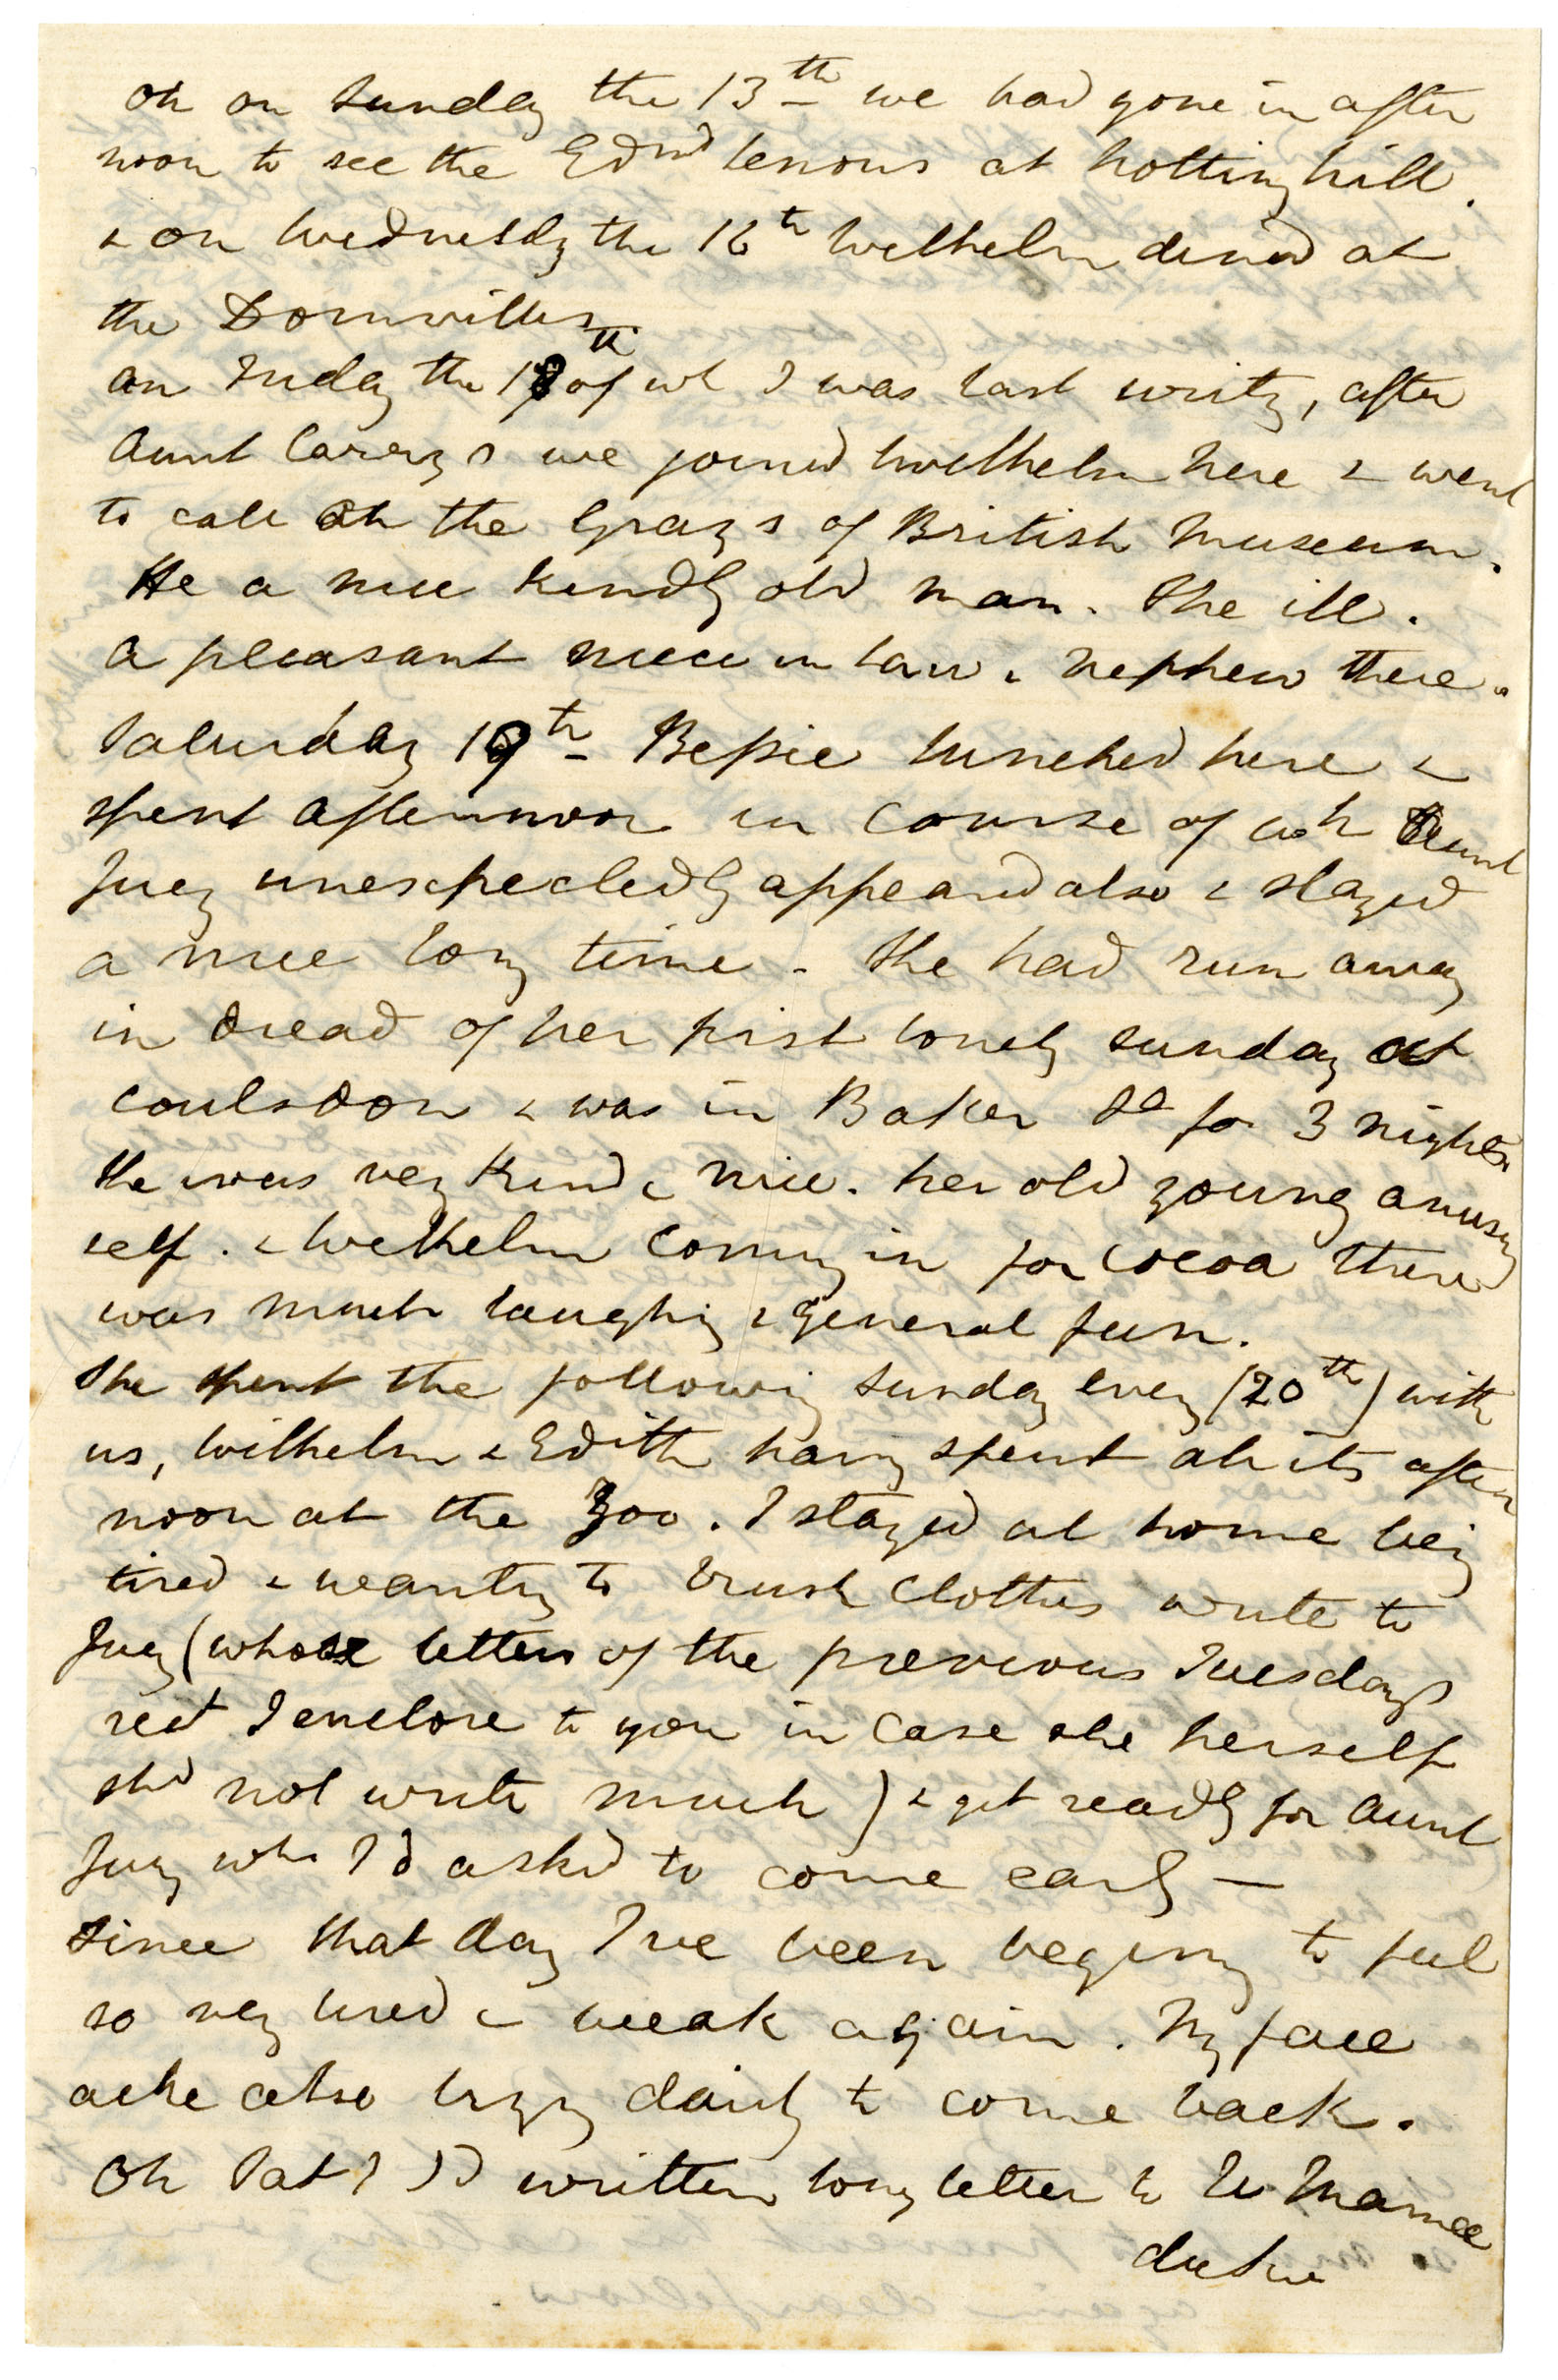 Oh on Sunday the 13th we had gone in after
noon to see the Edwd Lenoxs at Notting hill.
& on Wednesdy the 16th Wilhelm dined at
the Domvilles.
on Friday the 18th of wh I was last writg, after
Aunt Carry's we joined Wilhelm here & went
to call on the Grays of British Museum.
He a nice kindly old man. She ill.
a pleasant niece in law & nephew there.
Saturday 19th Bessie lunched here &
spent afternoon in course of wh Aunt
Juey unexpectedly appeared also & stayed
a nice long time. She had run away
in dread of her first lonely Sunday at
Coulsdon & was in Baker St for 3 nights.
She was vey kind & nice. her old young amusg
self. & Wilhelm coming in for cocoa there
was much laughig & general fun.
She spent the followig Sunday eveng (20th) with
us, Wilhelm & Edith havg spent all its after
noon at the Zoo. I stayed at home beig
tired & wantig to brush clothes write to
Juey (whose letter of the previous Tuesday
recd I enclose to you in case she herself
shd not write much) & get ready for Aunt
Juey who I'd asked to come early —
Since that day I've been beging to feel
so vey tired & weak again. My face
ache also tryg daily to come back.
Oh Sat I'd written long letter to